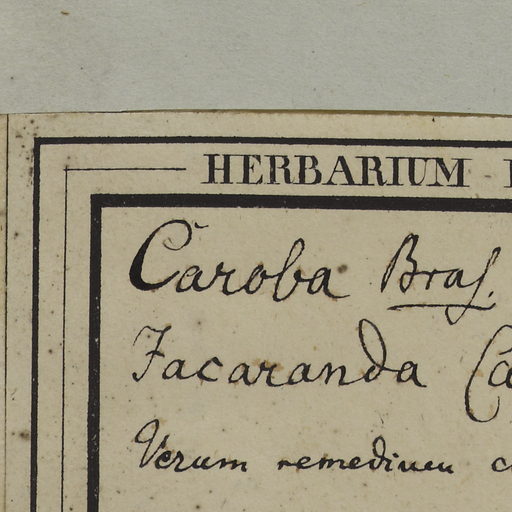 HERBARIUM
Caroba Bras.
Jacaranda Ca
Verum remedium c